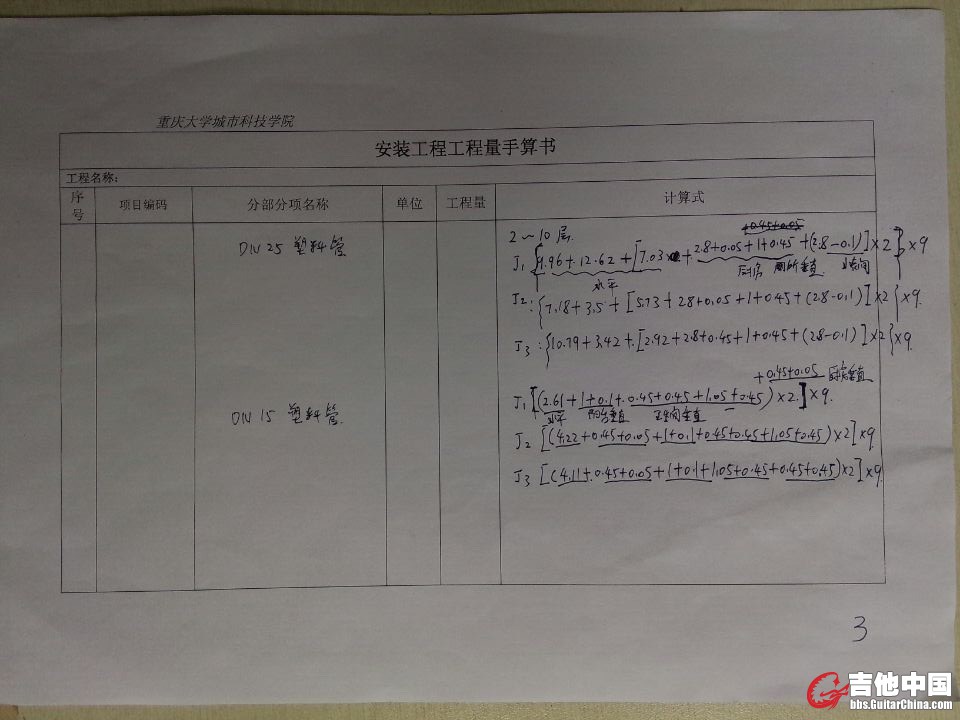 重庆大学城市科技学院
安装工程工程量手算书
工程名称:
序号 项目编码 分部分项名称 单位 工程量 计算式
2~10层
+0.45+0.05
DN25 塑料管
J1 {9.96+12.62+[7.03+2.8+0.05+1+0.45+(2.8-0.1)]×2}×9
水平 厨房 厕所垂直
J2: {7.18+3.5+[5.73+2.8+0.05+1+0.45+(2.8-0.1)]×2}×9
J3: {10.79+3.42+[2.92+2.8+0.45+1+0.45+(2.8-0.1)]×2}×9
+0.45+0.05 厨房垂直
DN15 塑料管
J1 [(2.61+1+0.1+0.45+0.45+1.05+0.45)×2]×9
水平 阳台垂直 卫生间垂直
J2 [(4.22+0.45+0.05+1+0.1+0.45+0.45+1.05+0.45)×2]×9
J3 [(4.11+0.45+0.05+1+0.1+1.05+0.45+0.45+0.45)×2]×9
3
吉他中国
bbs.GuitarChina.com